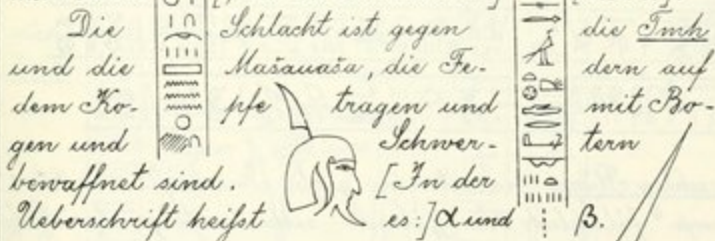 Die Schlacht ist gegen die Tmh
und die Mašauaša, die Fe- dern auf
dem Ko- pfe tragen und mit Bo-
gen und Schwer- tern
bewaffnet sind. [In der
Ueberschrift heißt es:] α und β.